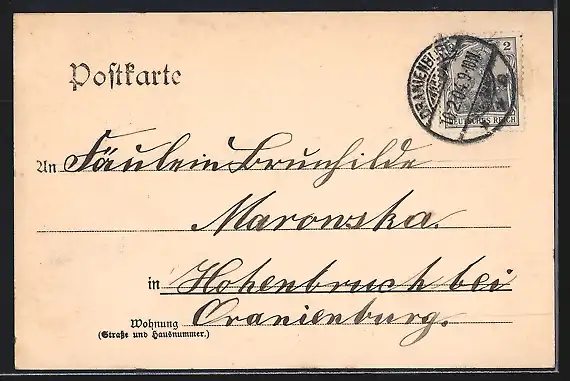 Postkarte
ORANENBURG
2
DEUTSCHES REICH
An Fäulein Brunhilde
Marowska.
in Hohenbruch bei
Wohnung Oranienburg.
(Straße und Hausnummer.)